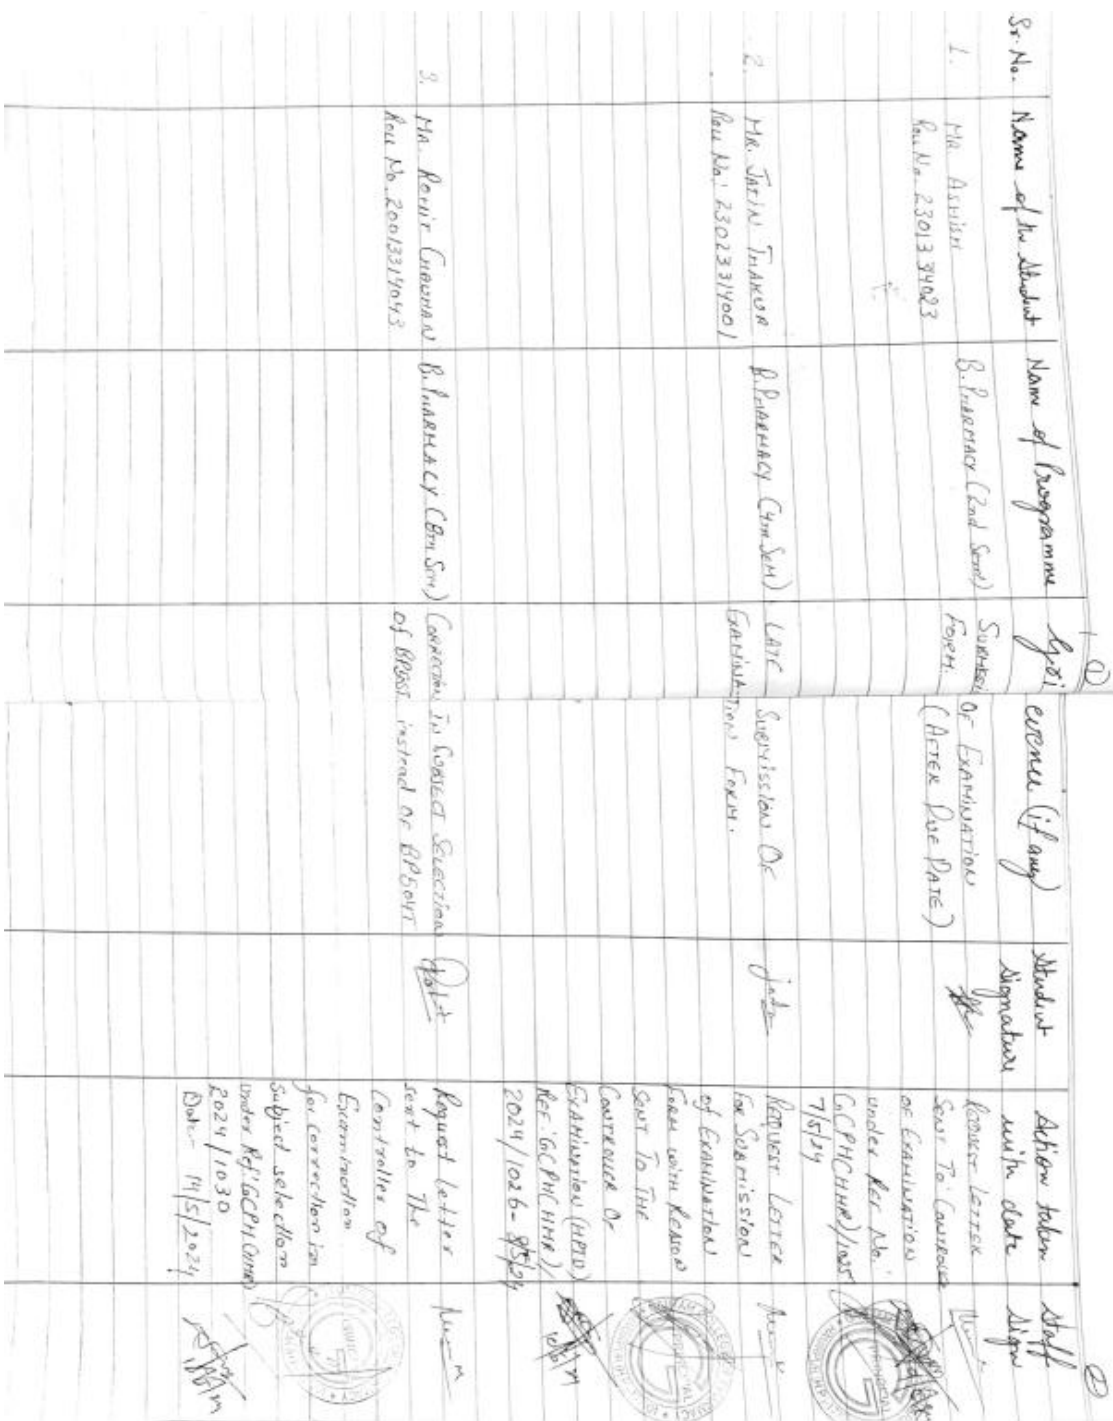 ①
Sr. No. Name of the Student Name of Programme Grievence (if any) Student Signature Action taken with date Staff Sign
②
1. MR ASHISH
Roll No. 2301334023
B. PHARMACY (2nd Sem)
SUBMISSION OF EXAMINATION
FORM. (AFTER DUE DATE)
REQUEST LETTER
SENT TO CONTROLLER
OF EXAMINATION
under REF No.
GCPHCHMR)/1025
7/5/24
2. MR. JATIN THAKUR
Roll No: 23023314001
B.PHARMACY (4TH SEM)
LATE SUBMISSION OF
EXAMINATION FORM.
jatin
REQUEST LETTER
FOR SUBMISSION
of EXAMINATION
FORM with REASON
SENT TO THE
CONTROLLER OF
EXAMINATION (HPTU)
REF. GCPH(HMR)/
2024/1026- 8/5/24
3. MR. ROHIT CHAUHAN
Roll No. 20013314043
B.PHARMACY (8TH SEM)
CORRECTION IN SUBJECT SELECTION
of instead OF BP804T
Rohit
Request Letter
sent to The
Controller of
Examination
for correction in
subject selection
under Ref GCPH(HMR)
2024/1030
Date:- 14/5/2024